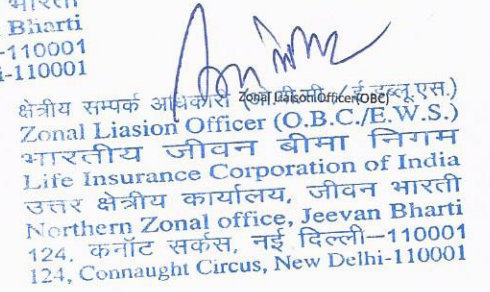 भारती
Bharti
-110001
i-110001
Zonal Liaison Officer(OBC)
क्षेत्रीय सम्पर्क अधिकारी ई.डब्लू.एस.)
Zonal Liasion Officer (O.B.C./E.W.S.)
भारतीय जीवन बीमा निगम
Life Insurance Corporation of India
उत्तर क्षेत्रीय कार्यालय, जीवन भारती
Northern Zonal office, Jeevan Bharti
124, कनॉट सर्कस, नई दिल्ली–110001
124, Connaught Circus, New Delhi-110001